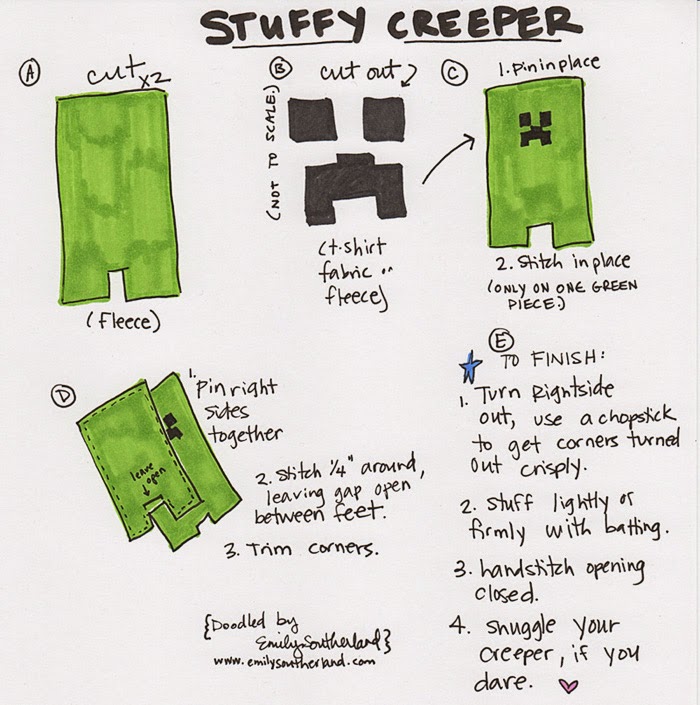 STUFFY CREEPER
A
cut x2
(fleece)
B
cut out
(NOT TO SCALE.)
(t-shirt
fabric or
fleece)
C
1. Pin in place
2. Stitch in place
(ONLY ON ONE GREEN
PIECE.)
D
1. Pin right
sides
together
leave
open
2. Stitch 1/4" around,
leaving gap open
between feet.
3. Trim corners.
E
TO FINISH:
1. Turn Rightside
out, use a chopstick
to get corners turned
out crisply.
2. Stuff lightly or
firmly with batting.
3. handstitch opening
closed.
4. Snuggle your
creeper, if you
dare.
{Doodled by
Emily Southerland}
www.emilysoutherland.com